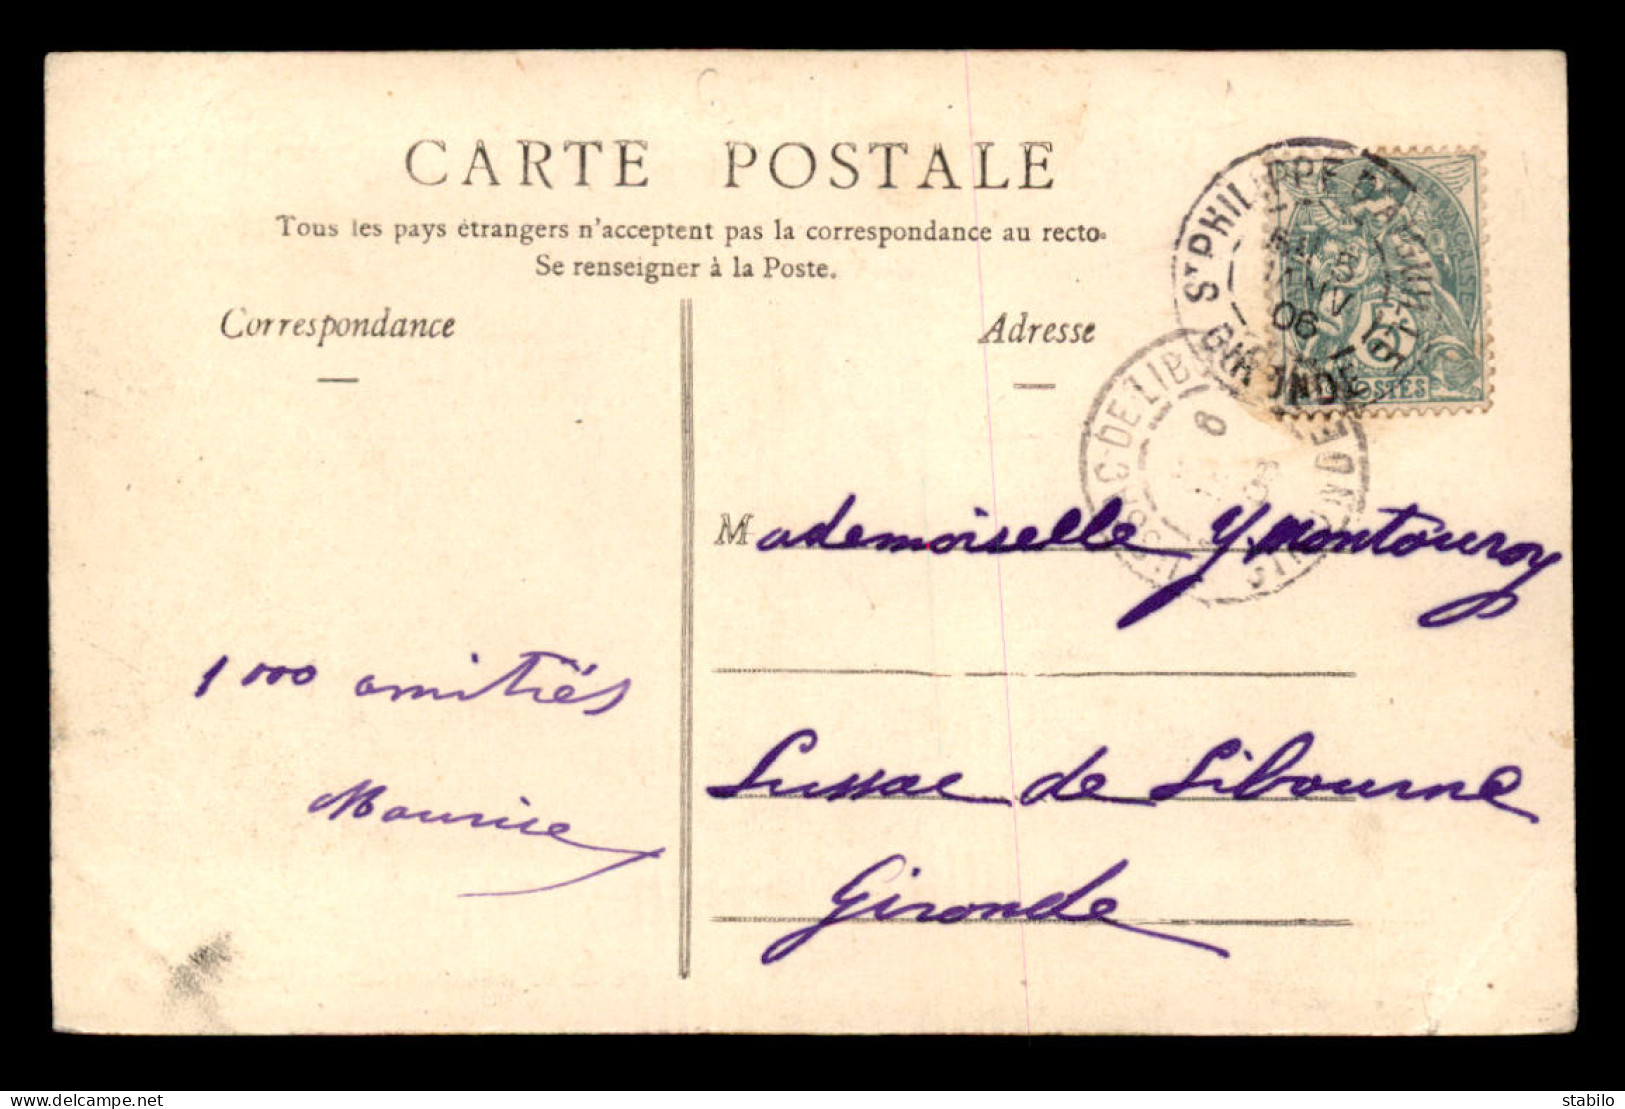 CARTE POSTALE
Tous les pays étrangers n'acceptent pas la correspondance au recto.
Se renseigner à la Poste.
Correspondance
Adresse
St PHILIPPE D'AIGUILLE
JANV
06
GIRONDE
5
POSTES
LUSSAC-DE-LIBOURNE
8
GIRONDE
Mademoiselle Y. Montouroy
1000 amitiés
Maurice
Lussac de Libourne
Gironde
stabilo